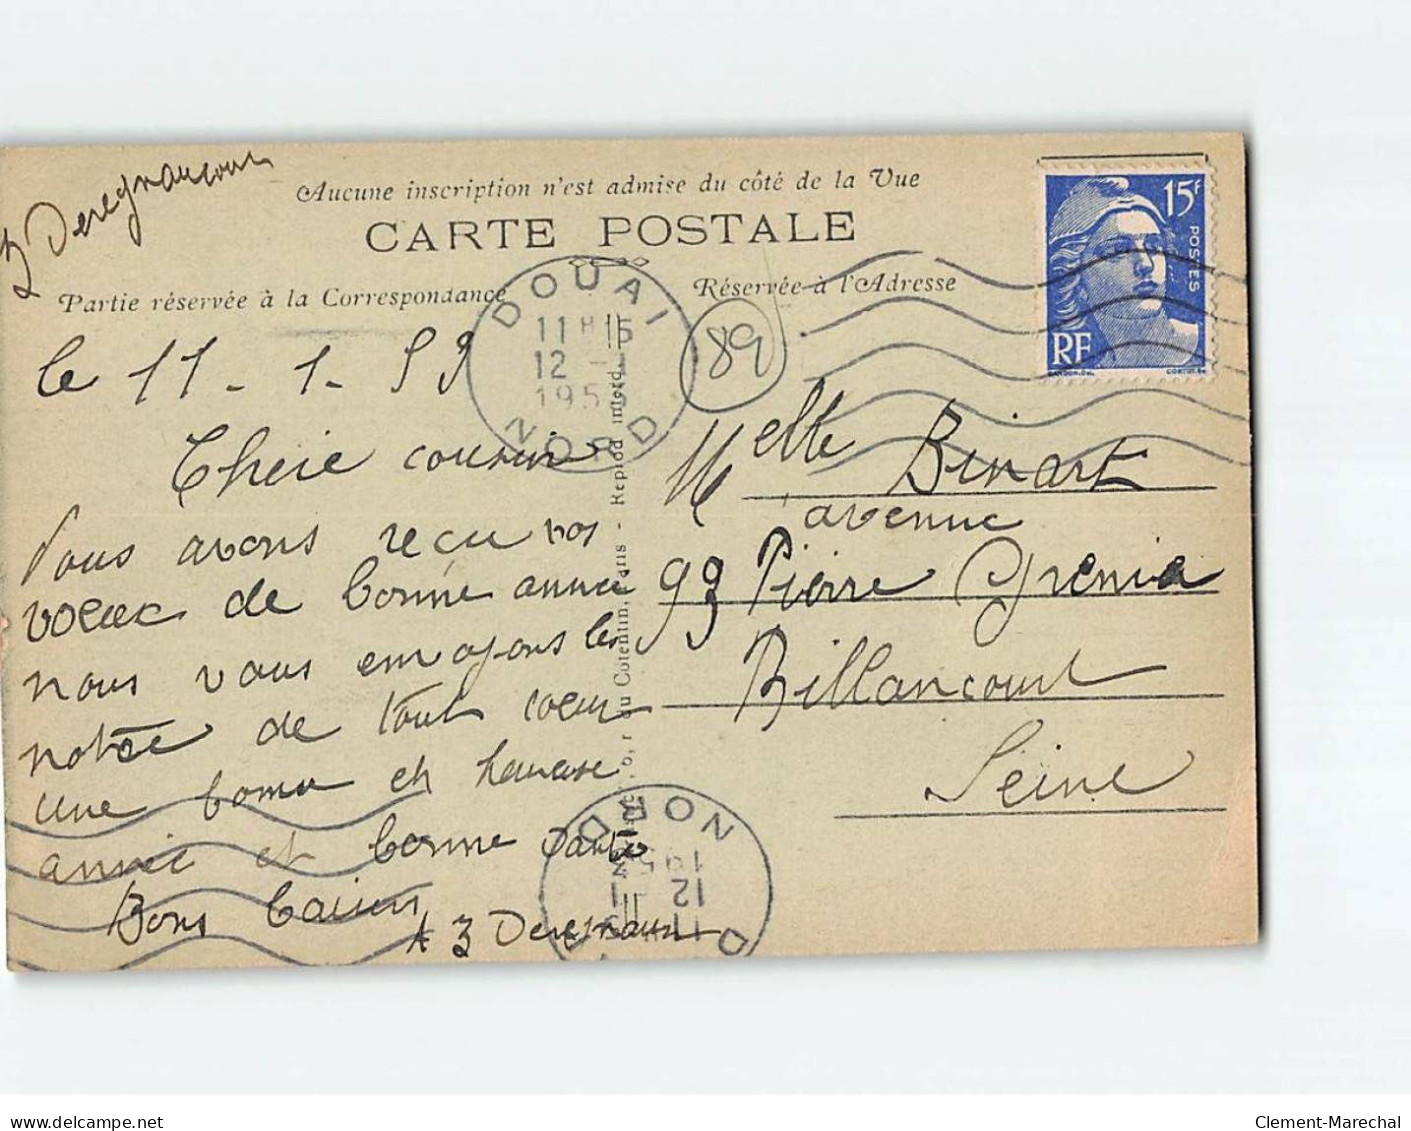 3 Deregnaucourt
Aucune inscription n'est admise du côté de la Vue
CARTE POSTALE
Partie réservée à la Correspondance
Réservée à l'Adresse
15F
POSTES
RF
DOUAI
12 - 1
195
NORD
89
le 11 - 1 - 53
Cheie cousine
Nous avons reçu vos
voeux de bonne année
nous vous envoyons les
notre de tout coeur
une bonne et
année et bonne santé
Bons baisers
A 3 Deregnaucourt
Melle Binart
avenue
93 Pierre Grenia
Billancourt
Seine
r. du Cotentin, Paris - Reprod. interd.
NORD
12 1
195
D
delcampe.net
Clement-Marechal